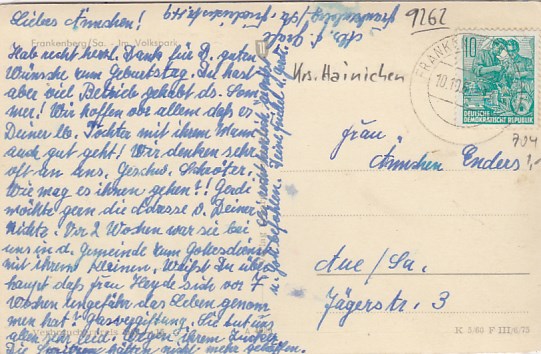 Liebes Ännchen!
Frankenberg/Sa. Im Volkspark
Hab recht herzl. Dank für d. guten
Wünsche zum Geburtstag. Du hast
aber viel Betrieb gehabt ds. Som
mer! Wir hoffen vor allem daß es
Deiner lb. Tochter mit ihrem Mann
auch gut geht! Wir denken sehr
oft an uns. Geschw. Schröter.
Wie mag es ihnen gehen?! Gerda
möchte gern die Adresse v. Deiner
Nichte. Vor 2 Wochen war sie bei
uns in d. Gemeinde zum Gottesdienst
mit ihrem Kleinen. Weißt Du über
haupt daß Frau Heyde sich vor 7
Wochen ungefähr das Leben genom
men hat? Gasvergiftung. Sie tut uns
allen sehr leid. Wegen ihrem Zucker
die hätten nicht mehr geholfen.
Sei recht herzlich gegrüßt
u. Gott befohlen.
9262
Krs. Hainichen
FRANKE
10.10.
10
DEUTSCHE
DEMOKRATISCHE REPUBLIK
704
1,-
Frau
Ännchen Enders
Aue/Sa.
Jägerstr. 3
K 3/60 F III/6/75